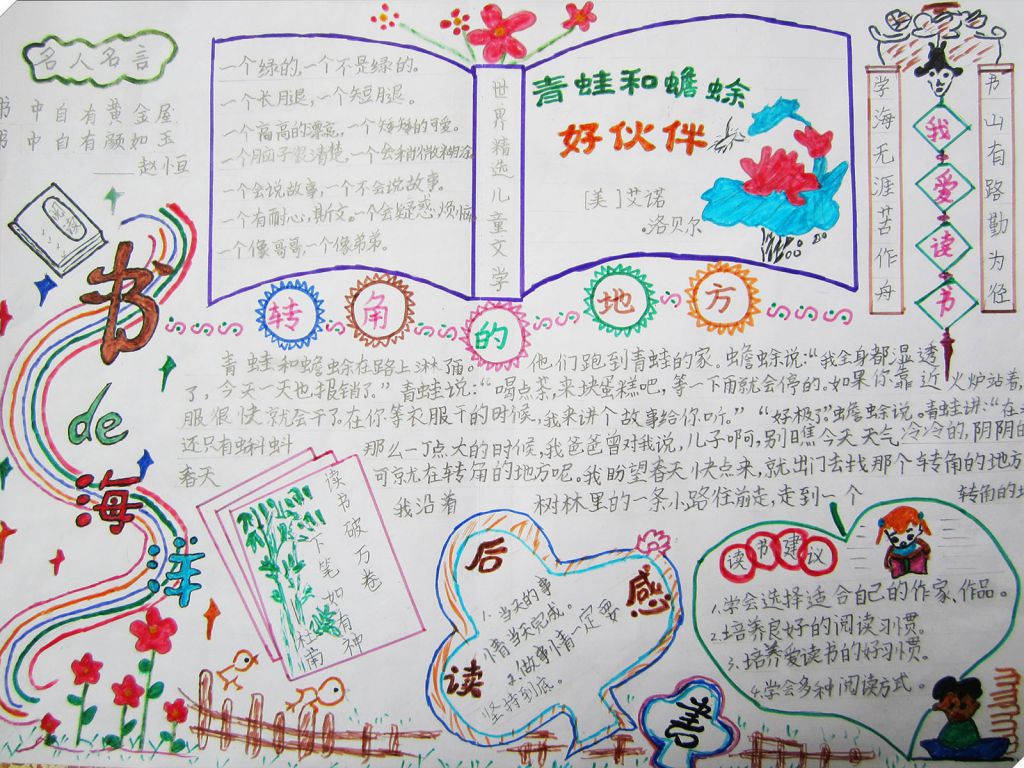 名人名言
书中自有黄金屋
书中自有颜如玉
——赵恒
一个绿的,一个不是绿的。
一个长月退,一个短月退。
一个高高的漂亮,一个矮矮的可爱。
一个会说故事,一个不会说故事。
一个有耐心,斯文。一个会疑惑烦恼
一个像哥哥,一个像弟弟。
世界精选儿童文学
青蛙和蟾蜍
好伙伴
[美]艾诺
·洛贝尔
学海无涯苦作舟
我爱读书
书山有路勤为径
书de海洋
转角的地方
青蛙和蟾蜍在路上淋了雨。他们跑到青蛙的家。蟾蜍说:“我全身都湿透
了,今天一天也报销了。”青蛙说:“喝点茶,来块蛋糕吧,等一下雨就会停的。如果你靠近火炉站着,
服很快就会干了在你等衣服干的时候,我来讲个故事给你听。”“好极了”蟾蜍说。青蛙讲:“在
还只有蝌蚪 那么一丁点大的时候,我爸爸曾对我说,儿子啊,别瞧今天天气冷冷的,阴阴的
春天 可就在转角的地方呢。我盼望春天快点来,就出门去找那个转角的地方
我沿着 树林里的一条小路往前走,走到一个 转角的地
读书破万卷
下笔如有神
杜甫
读后感
1.当天的事
情当天完成。
2.做事情一定要
坚持到底。
善
读书建议
1.学会选择适合自己的作家、作品。
2.培养良好的阅读习惯。
3.培养爱读书的好习惯。
4.学会多种阅读方式。